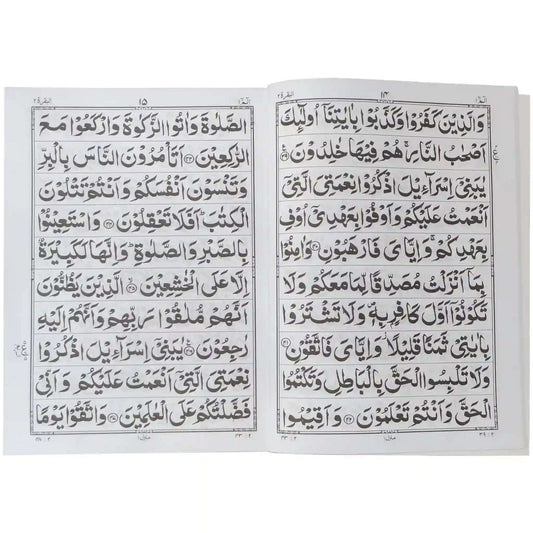 الٓمّٓ ١ ١٤ البقرة ٢
وَالَّذِيْنَ كَفَرُوْا وَكَذَّبُوْا بِاٰيٰتِنَاۤ اُولٰٓئِكَ
اَصْحٰبُ النَّارِ ۚ هُمْ فِيْهَا خٰلِدُوْنَ ﴿٣٩﴾
يٰبَنِيْۤ اِسْرَآءِيْلَ اذْكُرُوْا نِعْمَتِيَ الَّتِيْۤ
اَنْعَمْتُ عَلَيْكُمْ وَاَوْفُوْا بِعَهْدِيْۤ اُوْفِ
بِعَهْدِكُمْ ۚ وَاِيَّايَ فَارْهَبُوْنِ ﴿٤٠﴾ وَاٰمِنُوْا
بِمَاۤ اَنْزَلْتُ مُصَدِّقًا لِّمَا مَعَكُمْ وَلَا
تَكُوْنُوْۤا اَوَّلَ كَافِرٍۭ بِهٖ ۪ وَلَا تَشْتَرُوْا
بِاٰيٰتِيْ ثَمَنًا قَلِيْلًا ؗ وَّاِيَّايَ فَاتَّقُوْنِ ﴿٤١﴾
وَلَا تَلْبِسُوا الْحَقَّ بِالْبَاطِلِ وَتَكْتُمُوا
الْحَقَّ وَاَنْتُمْ تَعْلَمُوْنَ ﴿٤٢﴾ وَاَقِيْمُوا
٣٩ : ٢ منزل ١ ٤٣ : ٢
الٓمّٓ ١ ١٥ البقرة ٢
الصَّلٰوةَ وَاٰتُوا الزَّكٰوةَ وَارْكَعُوْا مَعَ
الرّٰكِعِيْنَ ﴿٤٣﴾ اَتَاْمُرُوْنَ النَّاسَ بِالْبِرِّ
وَتَنْسَوْنَ اَنْفُسَكُمْ وَاَنْتُمْ تَتْلُوْنَ
الْكِتٰبَ ؕ اَفَلَا تَعْقِلُوْنَ ﴿٤٤﴾ وَاسْتَعِيْنُوْا
بِالصَّبْرِ وَالصَّلٰوةِ ؕ وَاِنَّهَا لَكَبِيْرَةٌ
اِلَّا عَلَى الْخٰشِعِيْنَ ﴿٤٥﴾ الَّذِيْنَ يَظُنُّوْنَ
اَنَّهُمْ مُّلٰقُوْا رَبِّهِمْ وَاَنَّهُمْ اِلَيْهِ
رٰجِعُوْنَ ﴿٤٦﴾ يٰبَنِيْۤ اِسْرَآءِيْلَ اذْكُرُوْا
نِعْمَتِيَ الَّتِيْۤ اَنْعَمْتُ عَلَيْكُمْ وَاَنِّيْ
فَضَّلْتُكُمْ عَلَى الْعٰلَمِيْنَ ﴿٤٧﴾ وَاتَّقُوْا يَوْمًا
٤٣ : ٢ منزل ١ ٤٨ : ٢